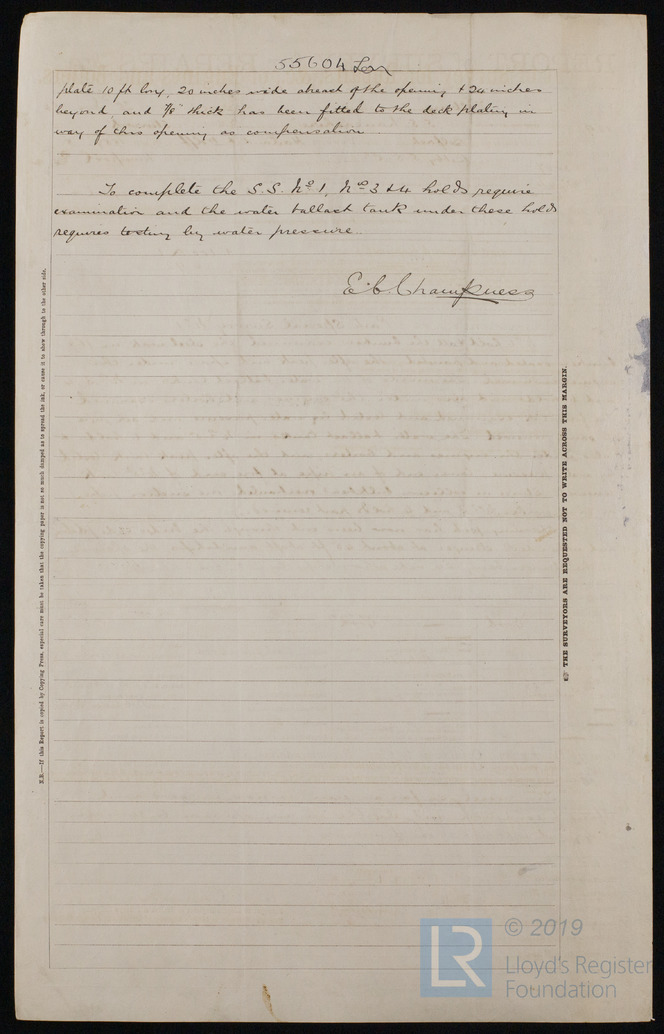 55604 Lon
plate 10 ft long, 20 inches wide ahead of the opening & 24 inches
beyond, and 7/8" thick has been fitted to the deck plating in
way of this opening as compensation
To complete the S.S. Nº 1, Nºs 3 & 4 holds require
examination and the water ballast tank under these holds
requires testing by water pressure.
E. C. Champness
N.B.—If this Report is copied by Copying Press, especial care must be taken that the copying paper is not so much damped as to spread the ink, or cause it to show through to the other side.
THE SURVEYORS ARE REQUESTED NOT TO WRITE ACROSS THIS MARGIN.
LR
© 2019
Lloyd's Register
Foundation